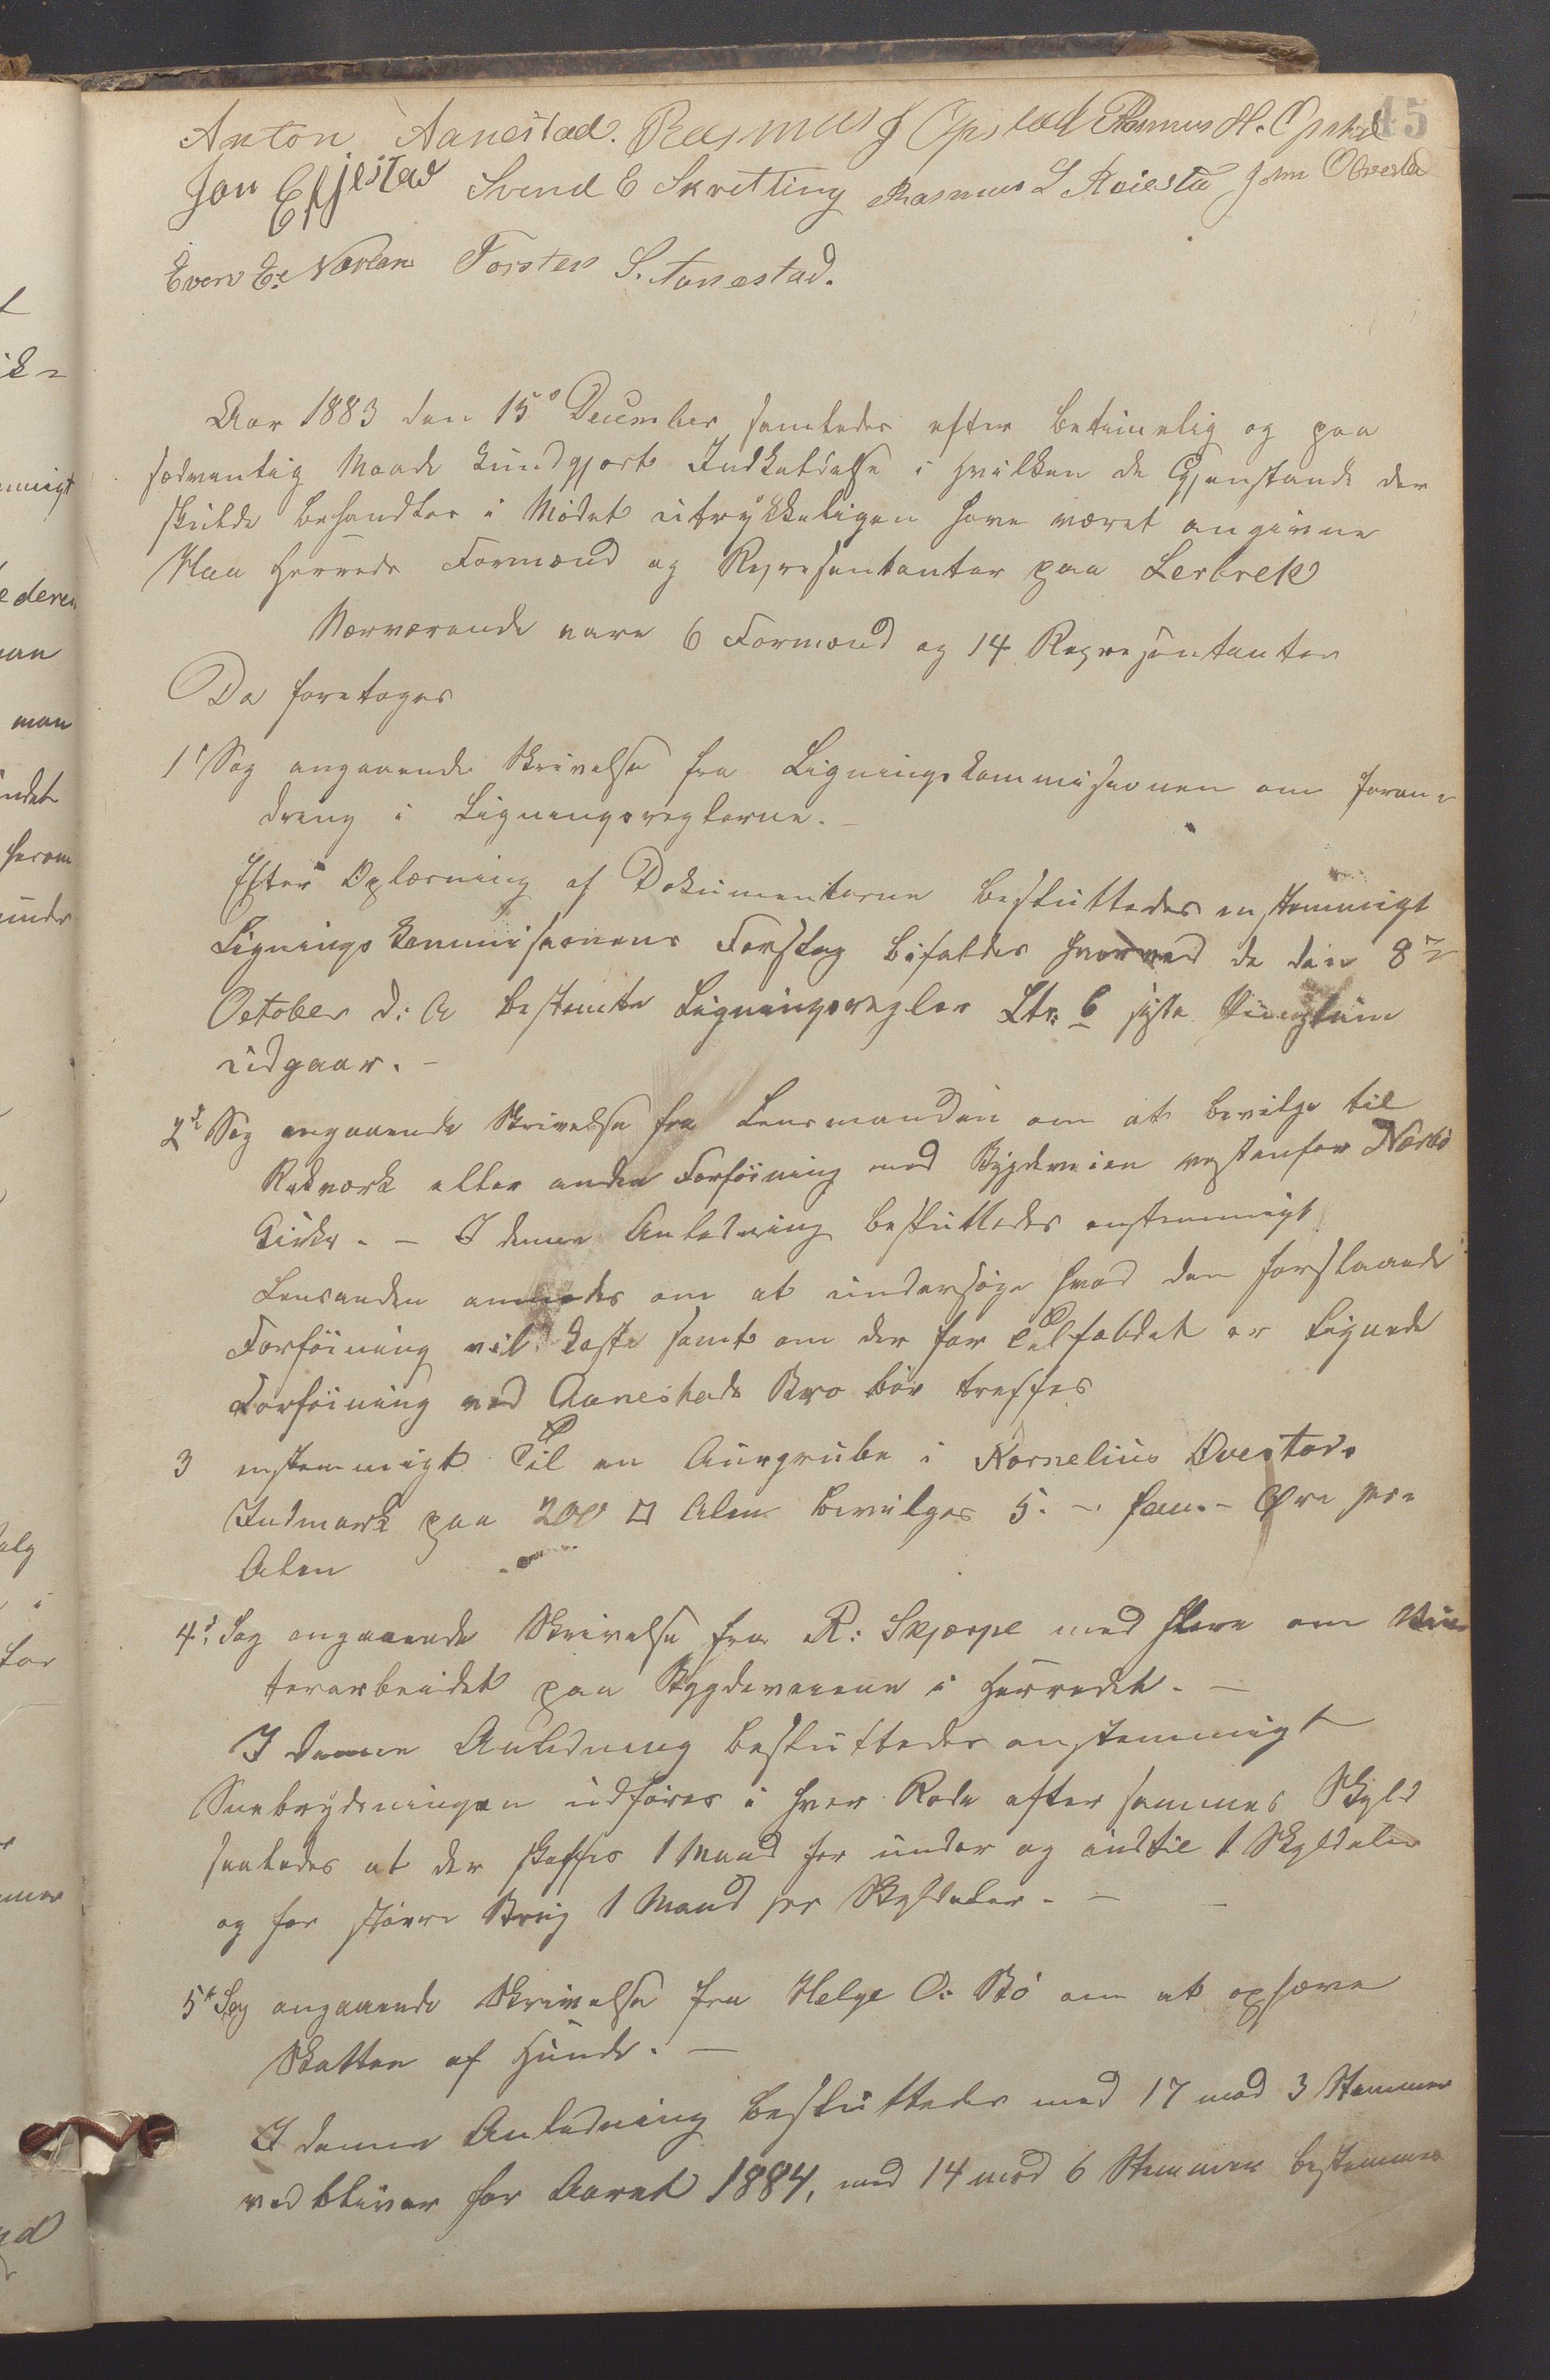 45
Anton Aanestad. Rasmus J Opstad Rasmus H. Opstad
Jon Efjestad Svend E Skretting Rasmus L Aniestad John Obrestad
Even E. Nærlan Torsten S. Aanestad.
Aar 1883 den 15de December samledes efter betimelig og paa
sedvanlig Maade kundgjort Indkaldelse i hvilken de Gjenstande der
skulde behandles i Mødet utrykkeligen have været angivne
Haa Herreds Formænd og Representanter paa Lerbrek
Nærværende vare 6 Formænd og 14 Representanter
Da foretoges
1. Sag angaaende Skrivelse fra Ligningskommissionen om foran-
dring i Ligningsreglerne. -
Efter Oplæsning af Dokumenterne besluttedes enstemmigt
Ligningskommissionens Forslag bifaldes hvorved de den 8de
October d: A bestemte Ligningsregler Ltr. 6 siste
udgaar. -
2. Sag angaaende Skrivelse fra Lensmanden om at bevilge til
Rekværk eller anden Forføining med Bygdeveien vestenfor Nærbø
Kirke. - I denne Anledning besluttedes enstemmigt
Lensanden anmodes om at undersøge hvad den forslaaede
Forføining vil koste samt om der for Tilfældet er lignede
Forføining ved Aanestads Bro bør treffes
3 enstemmigt Til en Aurgrube i Kornelius Ovestads
Indmark paa 200 □ Alen bevilges 5. -. fem. - Øre per
Alen
4. Sag angaaende Skrivelse fra R: Skjærpe med flere om Vin
terarbeidet paa Bygdeveiene i Herredet. -
I denne Anledning besluttedes enstemmigt
Snebrydningen udføres i hver Rode efter sammes Skyld
saaledes at der skaffes 1 Mand for under og indtil 1 Skyldaler
og for større Brug 1 Mand per Skyldaler. -
5. Sag angaaende Skrivelse fra Helge O: Bø om at ophæve
Skatten af Hunde. -
I denne Anledning besluttedes med 17 mod 3 Stemmer
vedbliver for Aaret 1884, med 14 mod 6 Stemmer bestemmes